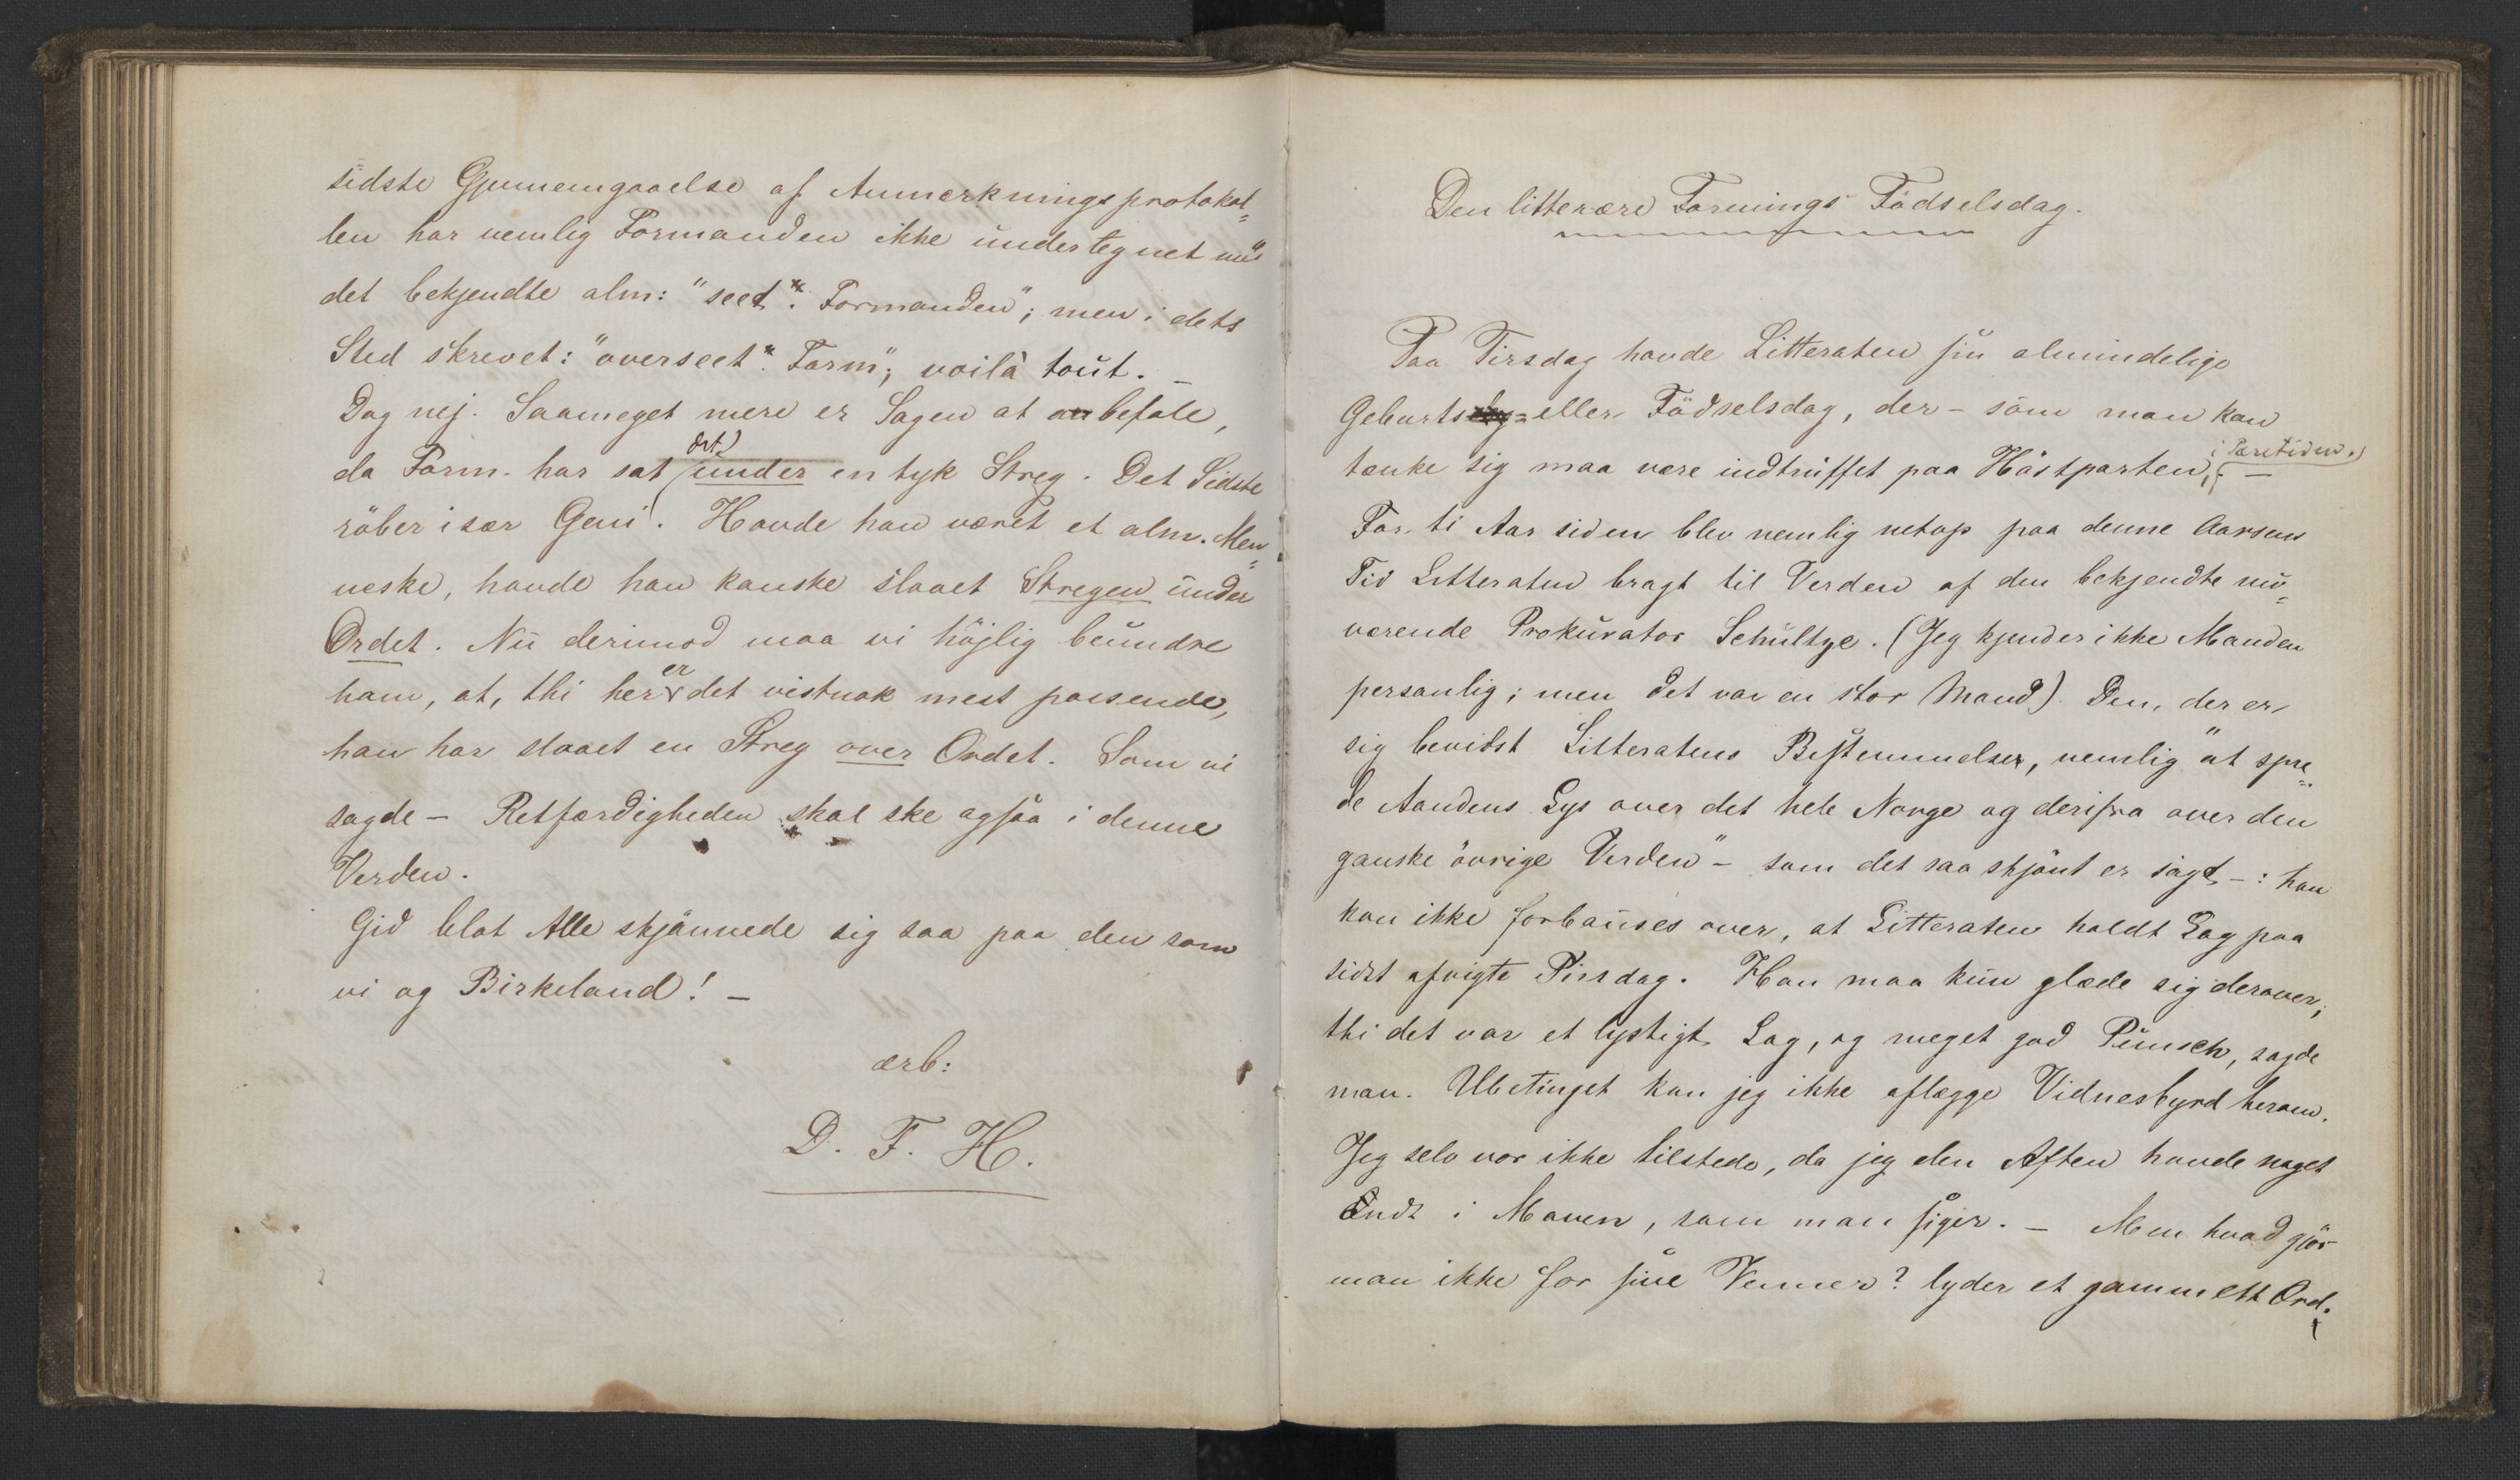 sidste Gjennemgaaelse af Anmærkningsprotokol=
len har nemlig Formanden ikke undertegnet med
det bekjendte alm: "seet". Formanden"; men i dets
Sted skrevet: "overseet". Form"; voilà tout. –
Dog nej. Saameget mere er Sagen at anbefale,
da Form. har sat det under en tyk Streg. Det Sidste
röber især Geni. Havde han været et alm. Men=
neske, havde han kanske slaaet Stregen under
Ordet. Nu derimod maa vi höjlig beundre
ham, at, thi her er det vistnok mest passende,
han har slaaet en Streg over Ordet. Som vi
sagde – Retfærdigheden skal ske ogsaa i denne
Verden.
Gid blot Alle skjönnede sig saa paa den som
vi og Birkeland! –
ærb:
D. F. H.
Den litterære Forenings Födselsdag.
Paa Tirsdag havde Litteraten sin almindelige
Geburts= eller Födselsdag, der – som man kan
tænke sig maa være indtruffet paa Höstparten, i Paretiden. –
For ti Aar siden blev nemlig netop paa denne Aarsens
Tid Litteraten bragt til Verden af den bekjendte nu=
værende Prokurator Schultze. (Jeg kjender ikke Manden
personlig; men det var en stor Mand). Den, der er
sig bevidst Litteratens Bestemmelser, nemlig "at spre=
de Aandens Lys over det hele Norge og derifra over den
ganske övrige Verden" – som det saa skjönt er sagt –: han
kan ikke forbauses over, at Litteraten holdt Lag paa
sidst afvigte Tirsdag. Han maa kun glæde sig derover;
thi det var et lystigt Lag, og meget god Punsch, sagde
man. Ubetinget kan jeg ikke aflægge Vidnesbyrd herom.
Jeg selv var ikke tilstede, da jeg den Aften havde noget
Ondt i Maven, som man siger. – Men hvad gjör
man ikke for sine Venner? lyder et gammelt Ord.